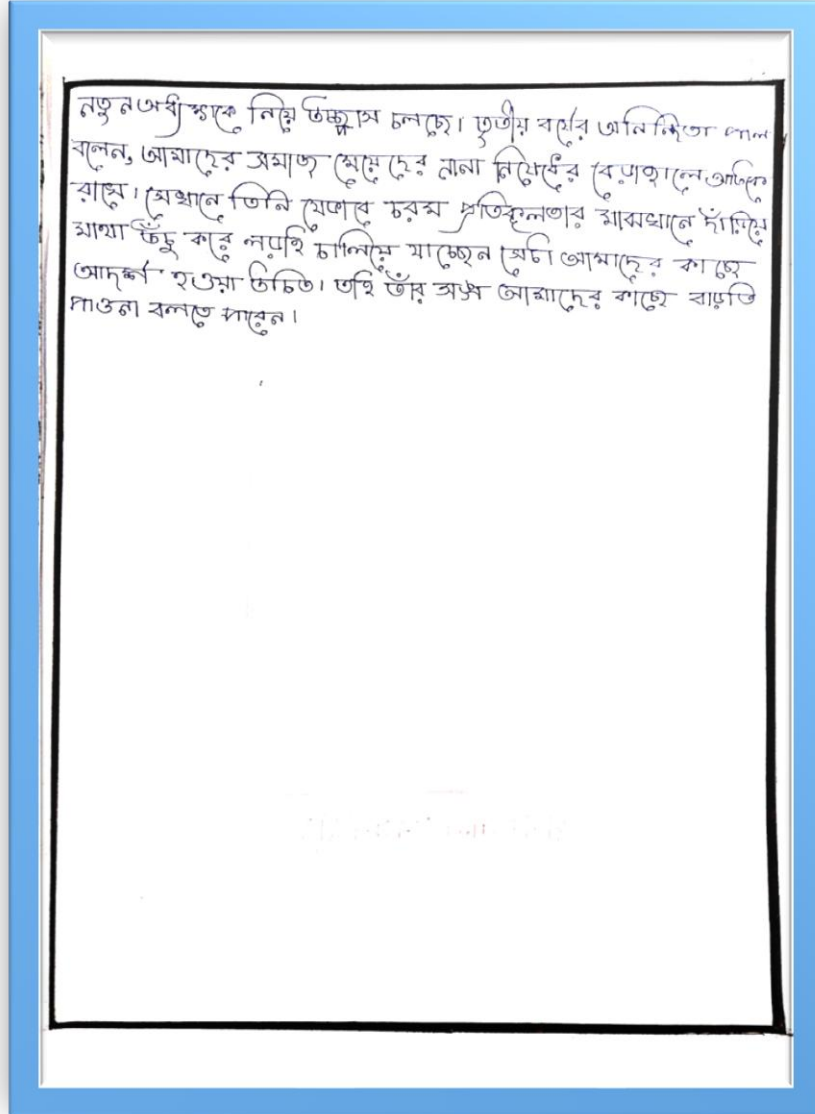 নতুন অধ্যক্ষকে নিয়ে উচ্ছ্বাস চলছে। তৃতীয় বর্ষের অনিন্দিতা পাল
বলেন, আমাদের সমাজ মেয়েদের নানা নিষেধের বেড়াজালে আটকে
রাখে। সেখানে তিনি যেভাবে চরম প্রতিকূলতার মাঝখানে দাঁড়িয়ে
মাথা উঁচু করে লড়াই চালিয়ে যাচ্ছেন সেটা আমাদের কাছে
আদর্শ হওয়া উচিত। তাই তাঁর সঙ্গ আমাদের কাছে বাড়তি
পাওনা বলতে পারেন।